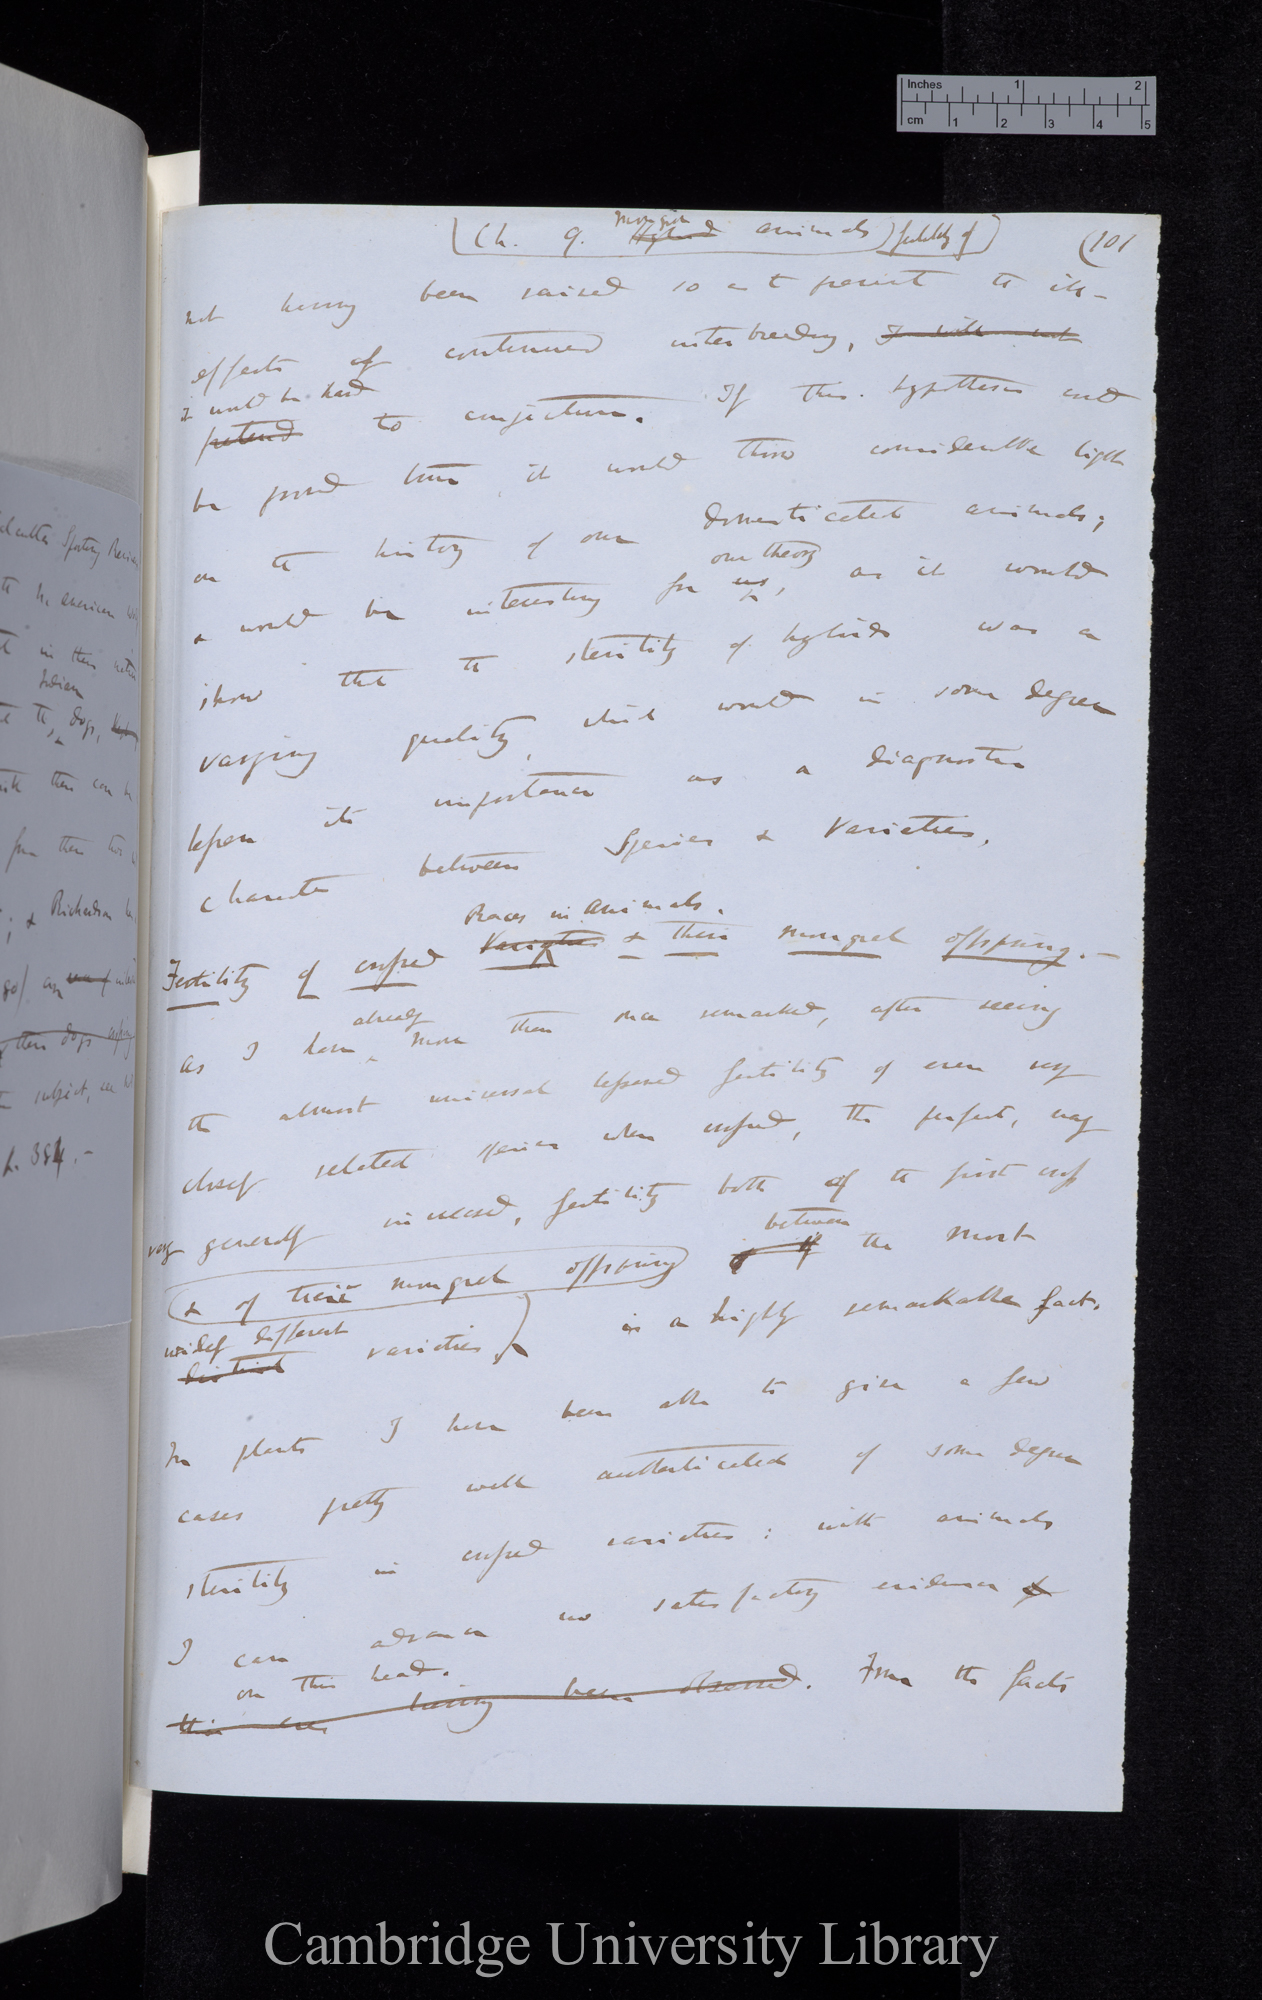 Inches 1 2
cm 1 2 3 4 5
(Ch. 9. Mongrel Hybrid animals) fertility of)
(101
not having been raised so as to permit the ill-
effects of continued interbreeding, I will not
it would be hard
pretend to conjecture. If this hypothesis could
be proved true, it would throw considerable light
on the history of our domesticated animals;
our theory
& would be interesting for us, as it would
show that the sterility of hybrids was a
varying quality, which would in some degree
lessen its importance as a diagnostic
character between Species & Varieties.
Races in animals.
Fertility of crossed Varieties & their mongrel offspring. —
already
As I have more than once remarked, after seeing
the almost universal lessened fertility of even very
closely related species when crossed, the perfect, nay
very generally increased, fertility both of the first cross
between
(& of their mongrel offspring) of the most
widely different
distinct varieties, is a highly remarkable fact.
In plants I have been able to give a few
cases pretty well authenticated of some degree
sterility in crossed varieties: with animals
I can advance no satisfactory evidence of
on this head.
this ever having been observed. From the facts
Calcutta Sporting Review
in their native
Indian
the dogs,
there can be
from these two
; & Richardson
these dogs
subject, see
p. 384. —
Cambridge University Library